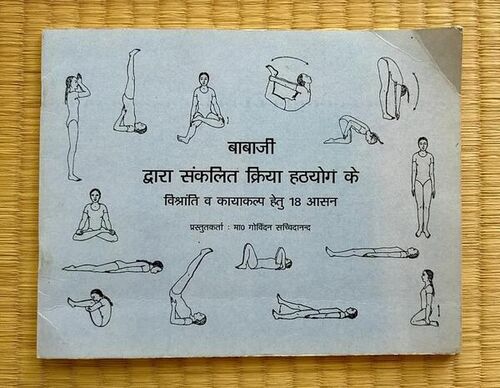 बाबाजी
द्वारा संकलित क्रिया हठयोग के
विश्रांति व कायाकल्प हेतु 18 आसन
प्रस्तुतकर्ता : मा० गोविंदन सच्चिदानन्द